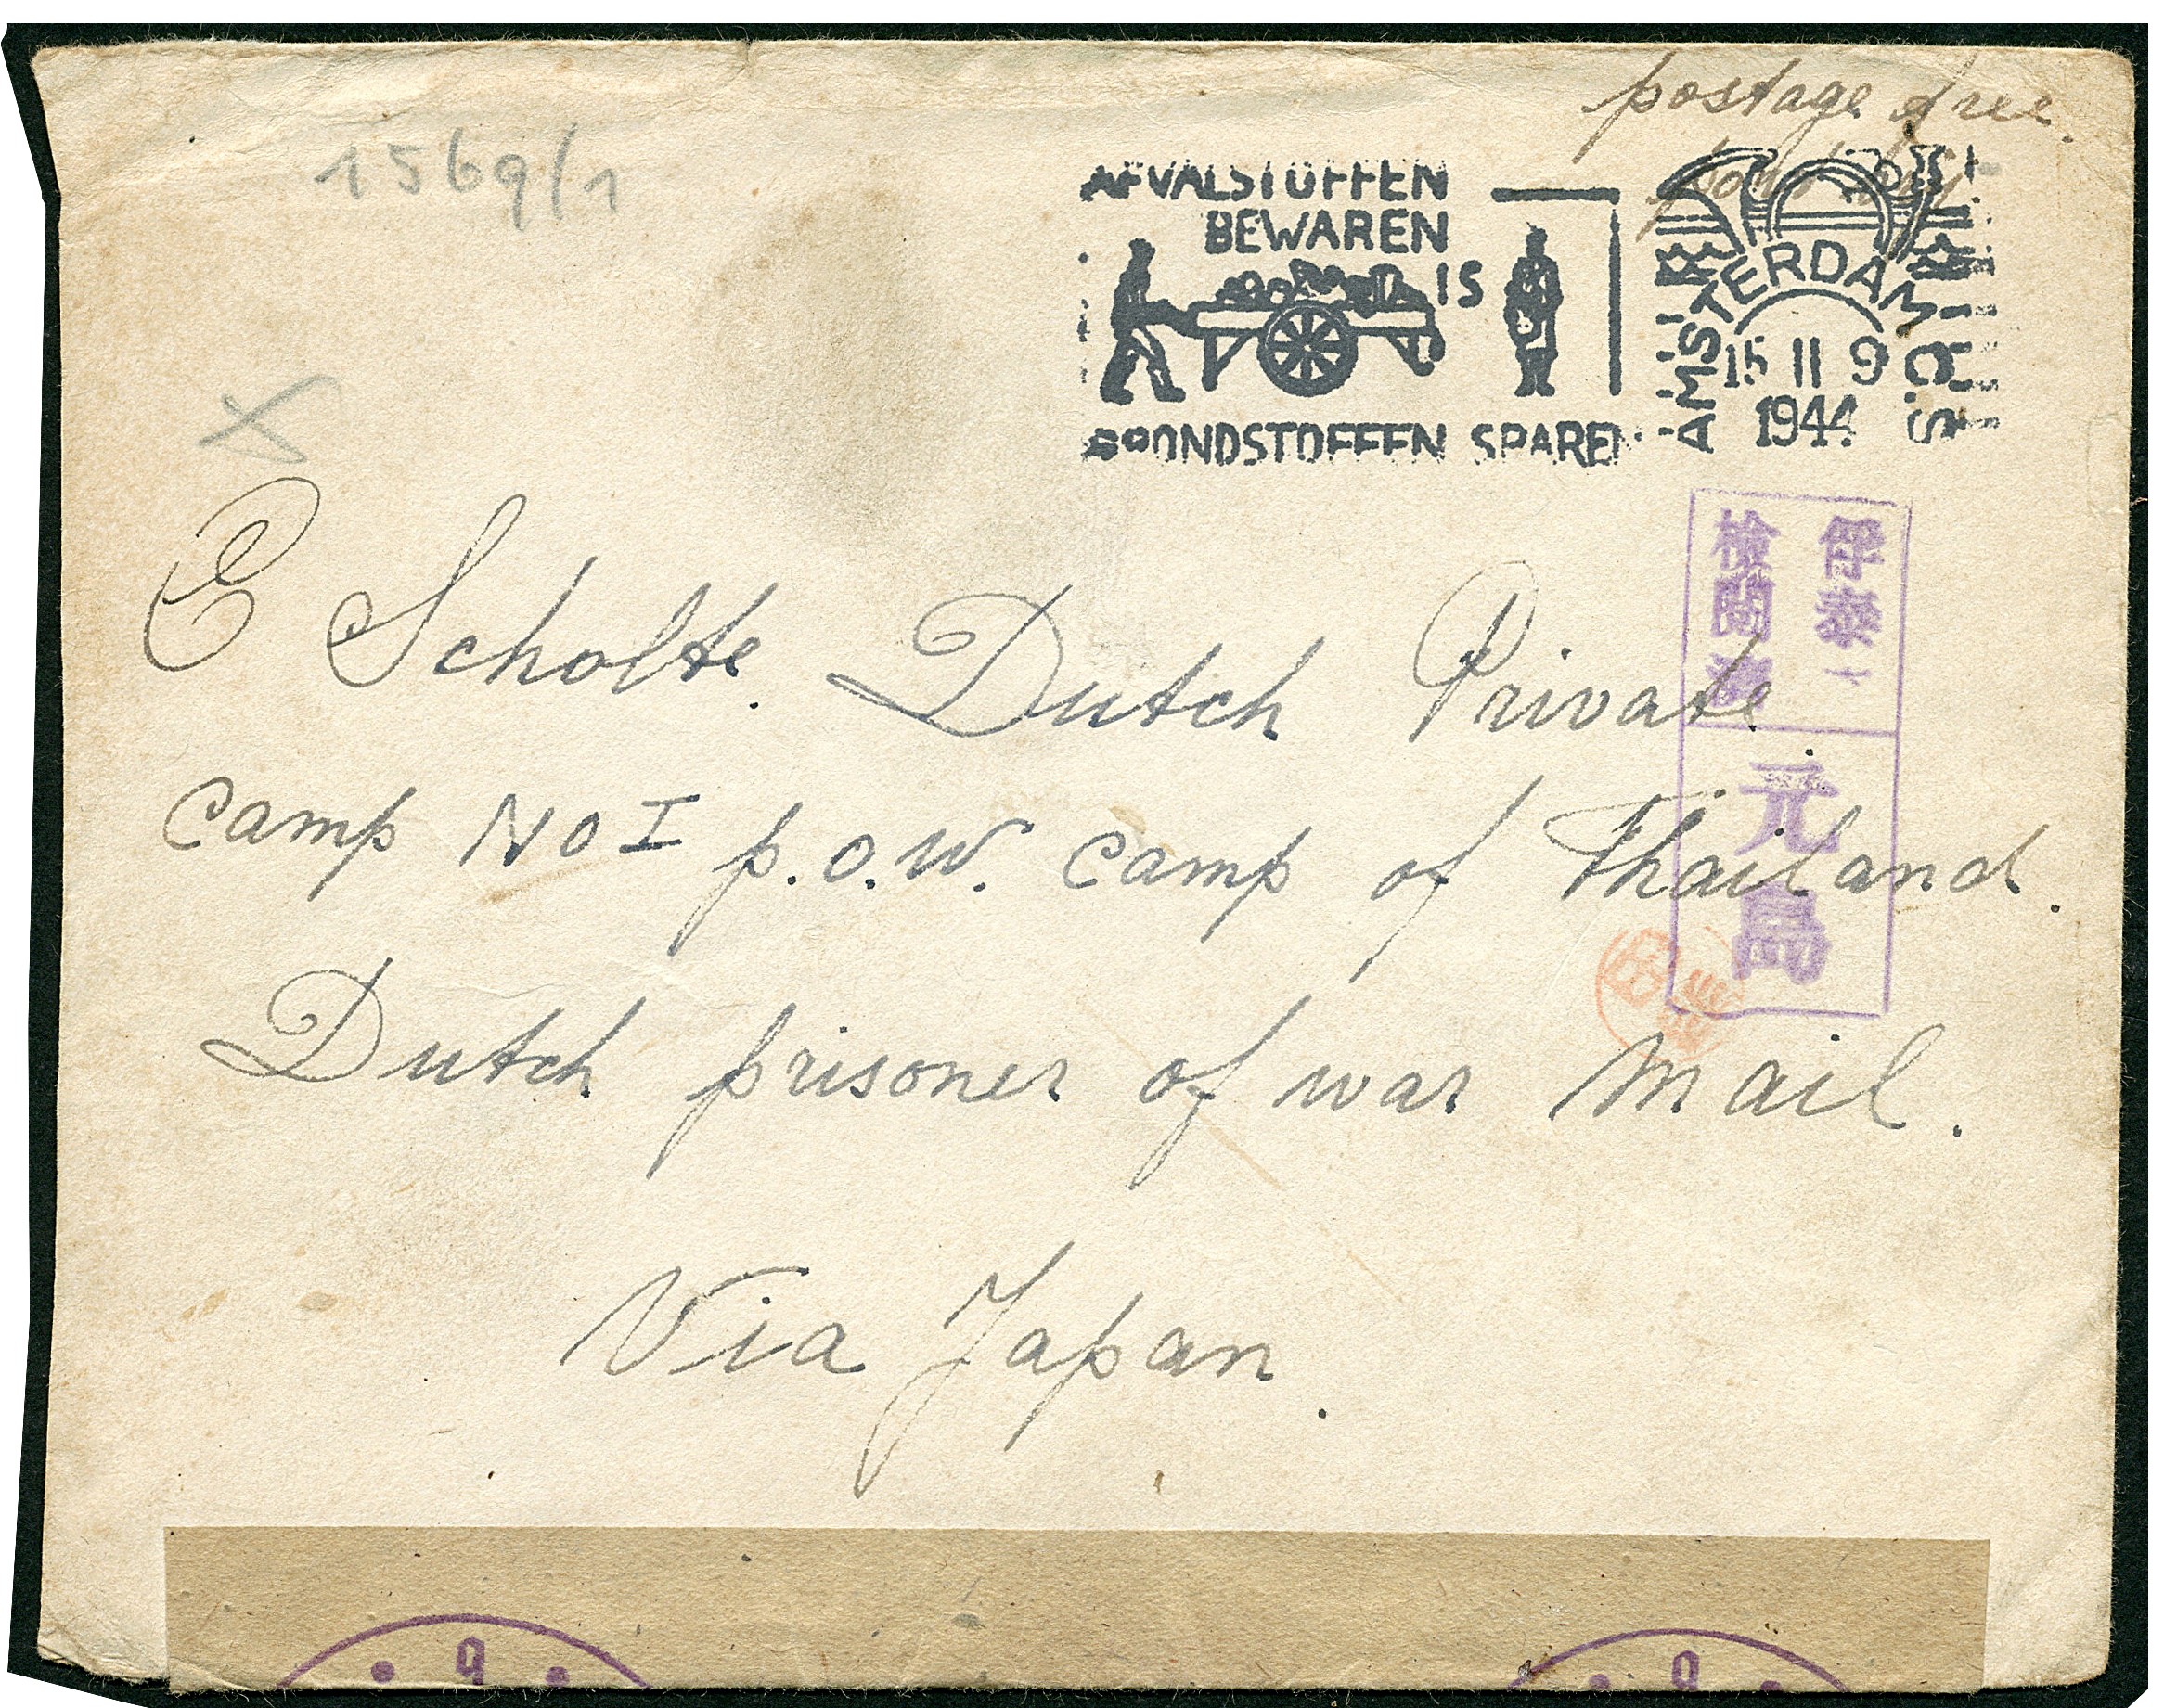 postage free.
1569/1
AFVALSTOFFEN
BEWAREN
IS
GRONDSTOFFEN SPAREN
AMSTERDAM
15 II 9
1944
AMSTERDAM
伊泰
檢閲濟
元
島
E Scholte. Dutch Private
Camp No I p.o.W. Camp of Thailand.
Dutch prisoner of war Mail.
Via Japan.
g
g